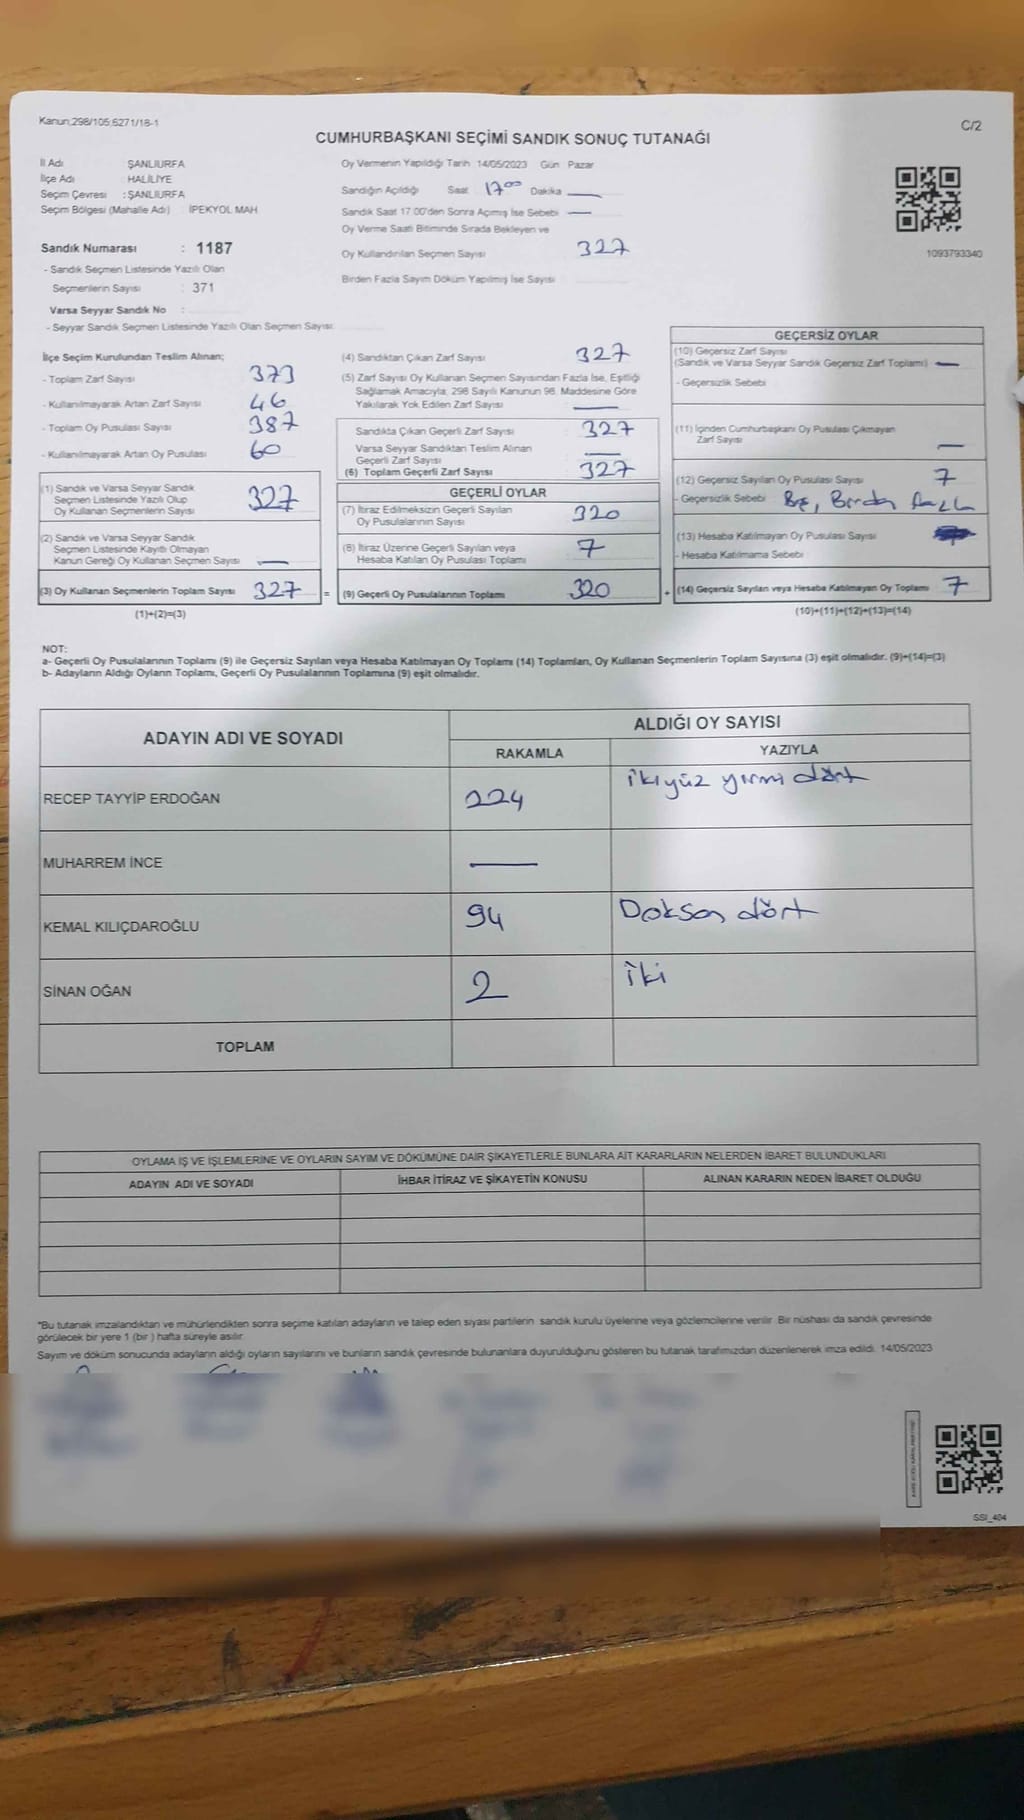 Kanun;298/105;6271/18-1
C/2
CUMHURBAŞKANI SEÇİMİ SANDIK SONUÇ TUTANAĞI
İl Adı ŞANLIURFA
İlçe Adı HALİLİYE
Seçim Çevresi : ŞANLIURFA
Seçim Bölgesi (Mahalle Adı) İPEKYOL MAH
Sandık Numarası : 1187
- Sandık Seçmen Listesinde Yazılı Olan
Seçmenlerin Sayısı : 371
Varsa Seyyar Sandık No :
- Seyyar Sandık Seçmen Listesinde Yazılı Olan Seçmen Sayısı
Oy Vermenin Yapıldığı Tarih 14/05/2023 Gün Pazar
Sandığın Açıldığı Saat 17 00 Dakika —
Sandık Saat 17.00'den Sonra Açımış İse Sebebi —
Oy Verme Saati Bitiminde Sırada Bekleyen ve
Oy Kullandırılan Seçmen Sayısı 327
Birden Fazla Sayım Döküm Yapılmış İse Sayısı
1093793340
İlçe Seçim Kurulundan Teslim Alınan;
- Toplam Zarf Sayısı 373
- Kullanılmayarak Artan Zarf Sayısı 46
- Toplam Oy Pusulası Sayısı 387
- Kullanılmayarak Artan Oy Pusulası 60
(1) Sandık ve Varsa Seyyar Sandık
Seçmen Listesinde Yazılı Olup
Oy Kullanan Seçmenlerin Sayısı 327
(2) Sandık ve Varsa Seyyar Sandık
Seçmen Listesinde Kayıtlı Olmayan
Kanun Gereği Oy Kullanan Seçmen Sayısı —
(3) Oy Kullanan Seçmenlerin Toplam Sayısı 327 =
(1)+(2)=(3)
(4) Sandıktan Çıkan Zarf Sayısı 327
(5) Zarf Sayısı Oy Kullanan Seçmen Sayısından Fazla İse, Eşitliği
Sağlamak Amacıyla, 298 Sayılı Kanunun 98. Maddesine Göre
Yakılarak Yok Edilen Zarf Sayısı —
Sandıkta Çıkan Geçerli Zarf Sayısı 327
Varsa Seyyar Sandıktan Teslim Alınan
Geçerli Zarf Sayısı —
(6) Toplam Geçerli Zarf Sayısı 327
GEÇERLİ OYLAR
(7) İtiraz Edilmeksizin Geçerli Sayılan
Oy Pusulalarının Sayısı 320
(8) İtiraz Üzerine Geçerli Sayılan veya
Hesaba Katılan Oy Pusulası Toplamı 7
(9) Geçerli Oy Pusulalarının Toplamı 320 +
GEÇERSİZ OYLAR
(10) Geçersiz Zarf Sayısı
(Sandık ve Varsa Seyyar Sandık Geçersiz Zarf Toplamı) —
- Geçersizlik Sebebi
(11) İçinden Cumhurbaşkanı Oy Pusulası Çıkmayan
Zarf Sayısı —
(12) Geçersiz Sayılan Oy Pusulası Sayısı 7
- Geçersizlik Sebebi Boş, Birden fazla
(13) Hesaba Katılmayan Oy Pusulası Sayısı
- Hesaba Katılmama Sebebi
(14) Geçersiz Sayılan veya Hesaba Katılmayan Oy Toplamı 7
(10)+(11)+(12)+(13)=(14)
NOT:
a- Geçerli Oy Pusulalarının Toplamı (9) ile Geçersiz Sayılan veya Hesaba Katılmayan Oy Toplamı (14) Toplamları, Oy Kullanan Seçmenlerin Toplam Sayısına (3) eşit olmalıdır. (9)+(14)=(3)
b- Adayların Aldığı Oyların Toplamı, Geçerli Oy Pusulalarının Toplamına (9) eşit olmalıdır.
ADAYIN ADI VE SOYADI
ALDIĞI OY SAYISI
RAKAMLA YAZIYLA
RECEP TAYYİP ERDOĞAN 224 ikiyüz yirmi dört
MUHARREM İNCE —
KEMAL KILIÇDAROĞLU 94 Doksan dört
SİNAN OĞAN 2 iki
TOPLAM
OYLAMA İŞ VE İŞLEMLERİNE VE OYLARIN SAYIM VE DÖKÜMÜNE DAİR ŞİKAYETLERLE BUNLARA AİT KARARLARIN NELERDEN İBARET BULUNDUKLARI
ADAYIN ADI VE SOYADI İHBAR İTİRAZ VE ŞİKAYETİN KONUSU ALINAN KARARIN NEDEN İBARET OLDUĞU
*Bu tutanak imzalandıktan ve mühürlendikten sonra seçime katılan adayların ve talep eden siyasi partilerin sandık kurulu üyelerine veya gözlemcilerine verilir. Bir nüshası da sandık çevresinde
görülecek bir yere 1 (bir ) hafta süreyle asılır.
Sayım ve döküm sonucunda adayların aldığı oyların sayılarını ve bunların sandık çevresinde bulunanlara duyurulduğunu gösteren bu tutanak tarafımızdan düzenlenerek imza edildi. 14/05/2023
SSI_404